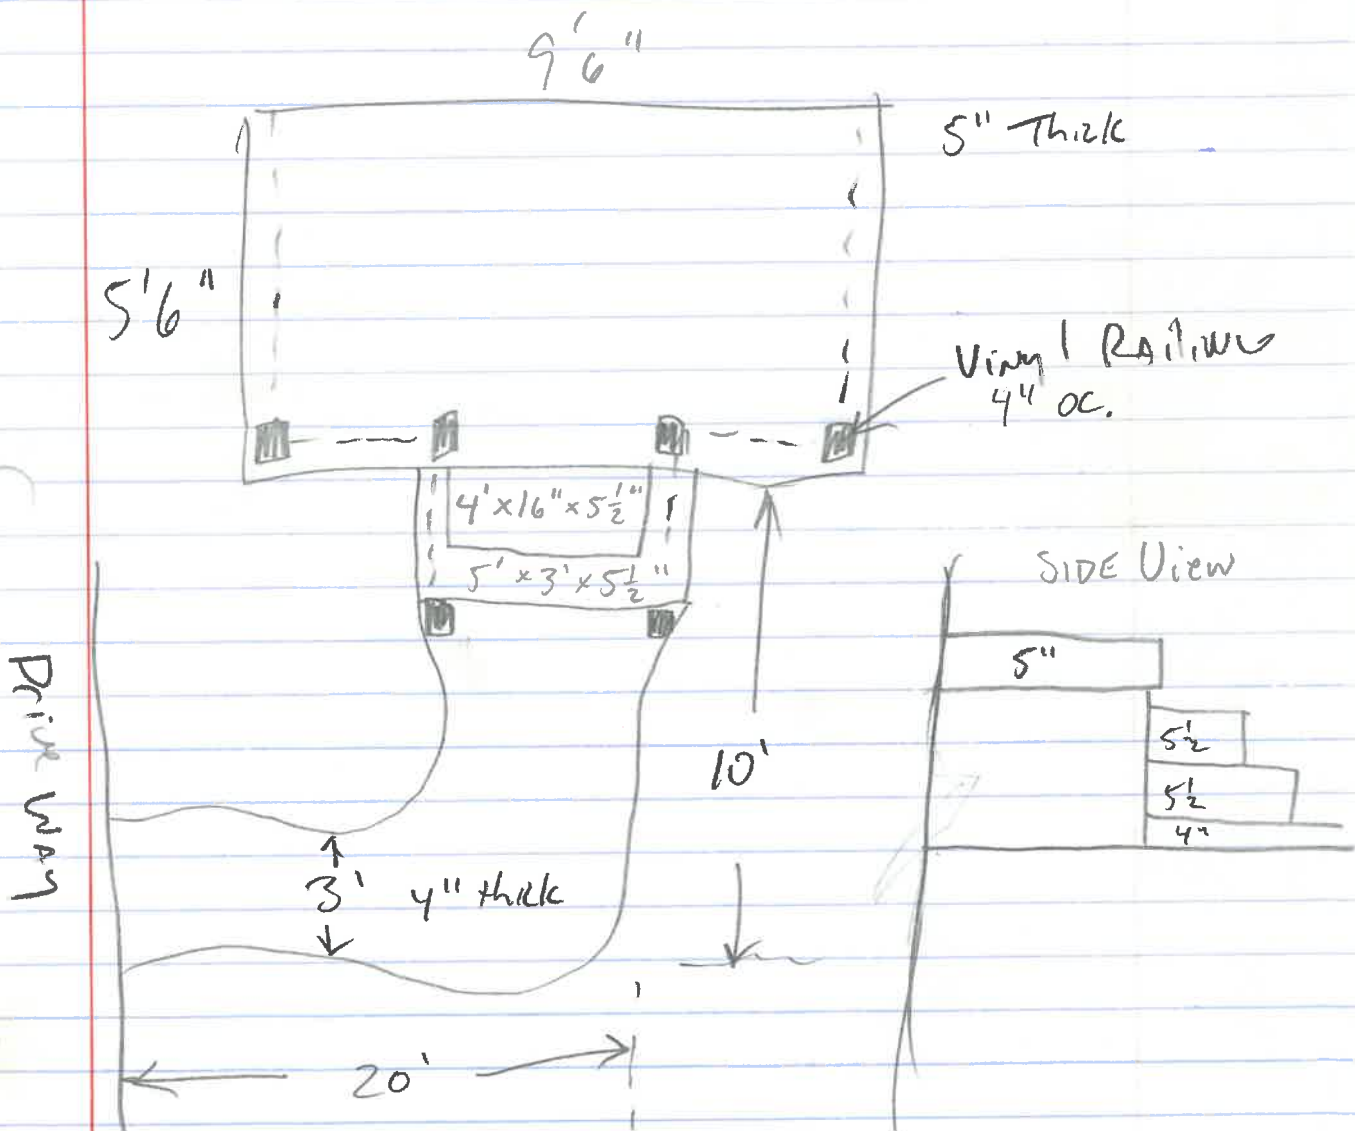 9'6"
5" Thick
5'6"
Vinyl Railing
4" OC.
4'x16"x5½"
5'x3'x5½"
SIDE View
5"
5½
5½
4"
10'
Drive Way
3' 4" thick
20'